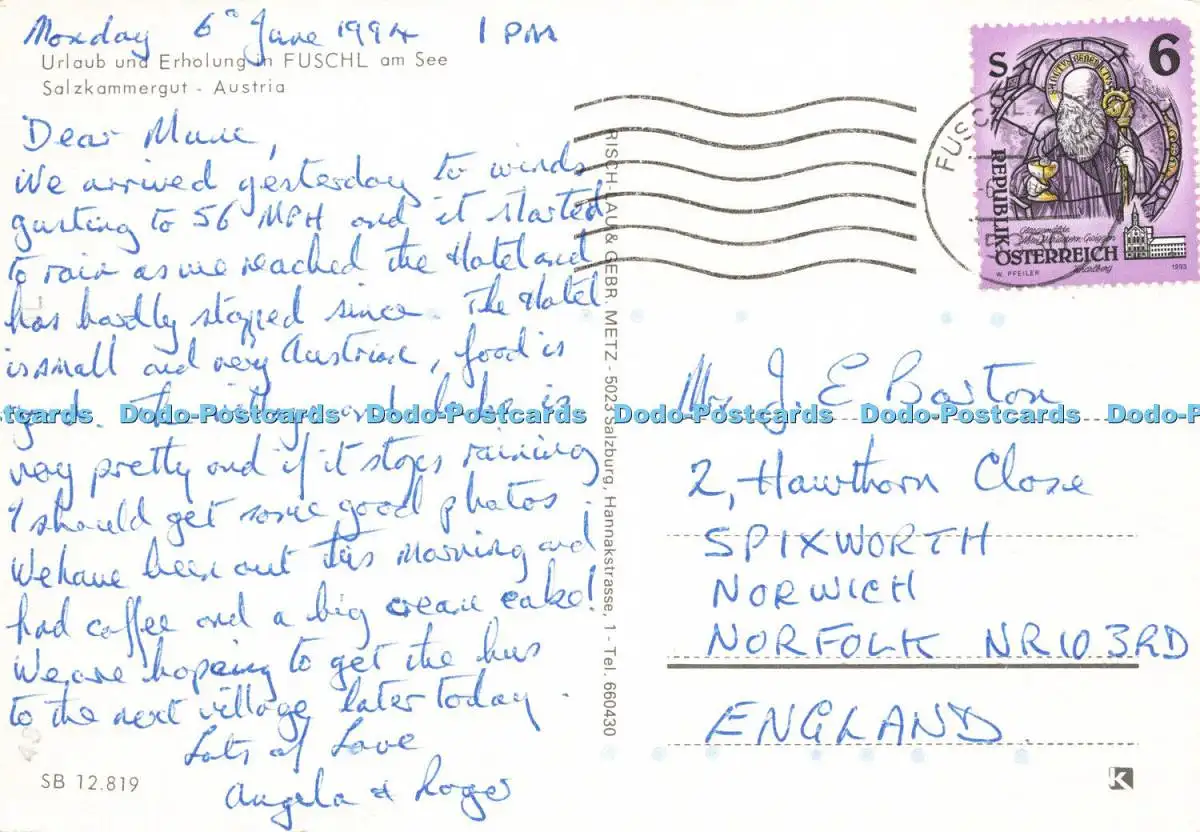 Monday 6th June 1994 1 PM
Urlaub und Erholung in FUSCHL am See
Salzkammergut - Austria
Dear Mum,
We arrived yesterday to winds
gusting to 56 MPH and it started
to rain as we reached the Hotel and
has hardly stopped since. The Hotel
is small and very Austrian, food is
good. The village and lake is
very pretty and if it stops raining
I should get some good photos.
We have been out this morning and
had coffee and a big cream cake!
We are hoping to get the bus
to the next village later today.
Lots of Love
Angela & Roger
SB 12.819
RISCH-LAU & GEBR. METZ - 5023 Salzburg, Hannakstrasse, 1 - Tel. 660430
S 6
SANCTUS BENEDICTUS
REPUBLIK
ÖSTERREICH
W. PFEILER
1993
FUSCHL A
Mrs J. E Barton
2, Hawthorn Close
SPIXWORTH
NORWICH
NORFOLK NR10 3RD
ENGLAND
K
Postcards Dodo-Postcards Dodo-Postcards Dodo-Postcards Dodo-Postcards Dodo-P